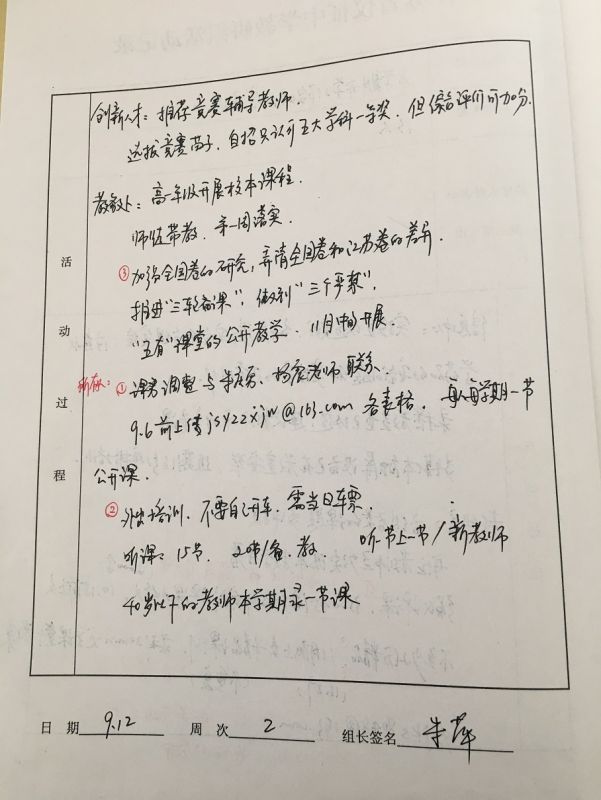 创新人才：推荐竞赛辅导教师.
选拔竞赛苗子. 自招只认可五大学科一等奖. 但综合评价可加分.
教务处：高一年级开展校本课程.
师徒带教. 第一周落实.
③加强全国卷的研究，弄清全国卷和江苏卷的差异.
推进“三轮备课”，做到“三个严禁”.
“五有”课堂的公开教学. 11月中旬开展.
①课务调整 与 老师联系.
9.6前上传jsyzzxjw@163.com 各表格. 每人每学期一节
公开课.
②外出培训. 不要自己开车. 需当日车票
听课：15节. 备.教. 听一节上一节/新教师
40岁以下的教师本学期录一节课
活动过程
日 期 9.12 周 次 2 组长签名 朱萍